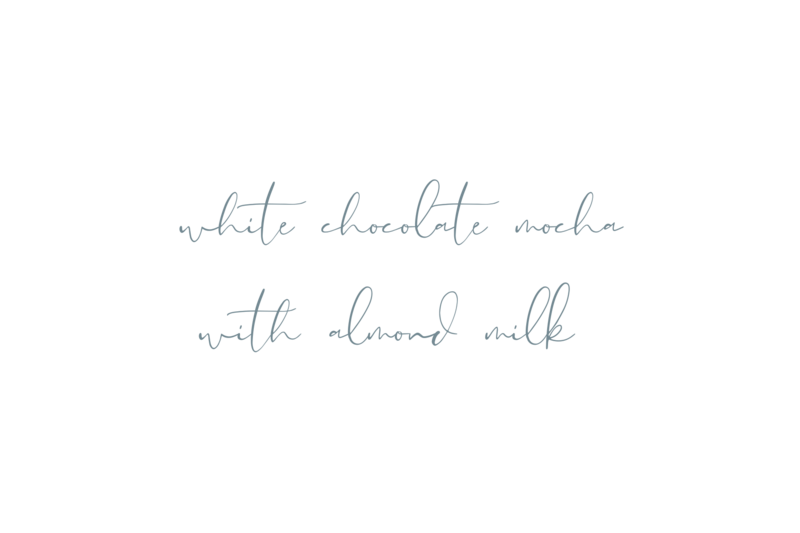 white chocolate mocha
with almond milk